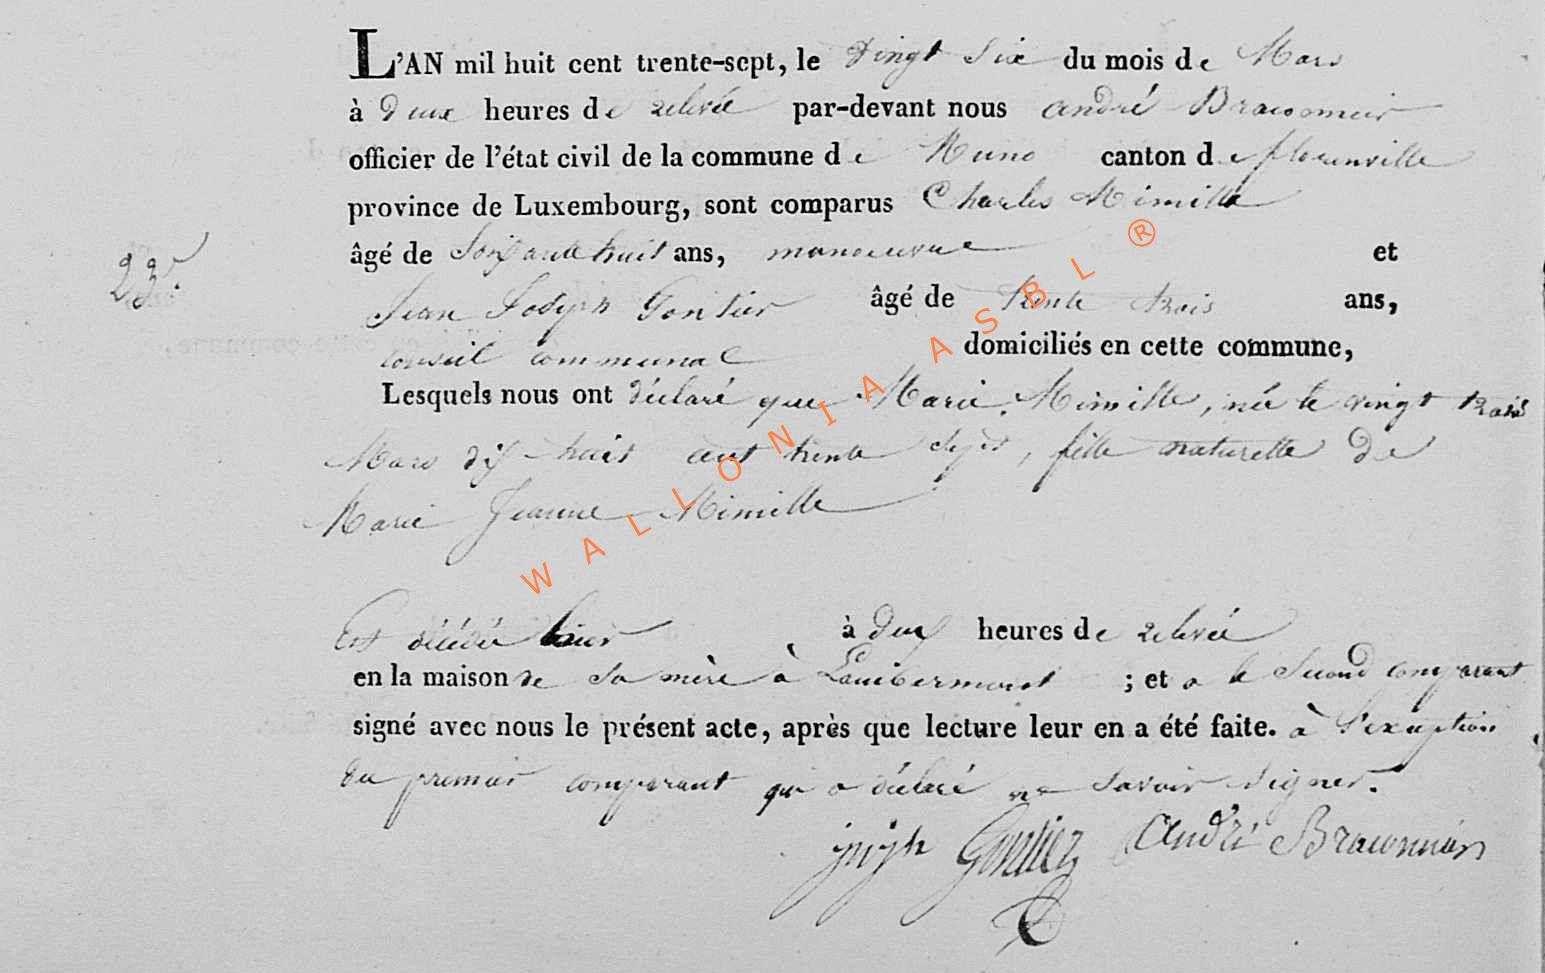 L'AN mil huit cent trente-sept, le vingt six du mois de Mars
à deux heures de relevée par-devant nous andré Braconnier
officier de l'état civil de la commune de Muno canton de florenville
province de Luxembourg, sont comparus Charles Mimille
âgé de Soixante huit ans, manoeuvre et
23.
Jean Joseph Gontier âgé de trente trois ans,
conseil communal domiciliés en cette commune,
Lesquels nous ont déclaré que Marie Mimille, née le vingt trois
Mars dix huit cent trente sept, fille naturelle de
Marie Jeanne Mimille
Est décédée hier à deux heures de relevée
en la maison de sa mère à Lambermont ; et a le Second comparant
signé avec nous le présent acte, après que lecture leur en a été faite. à l'exception
du premier comparant qui a déclaré ne savoir signer.
Gontier andré Braconnier
WALLONIA ASBL ®